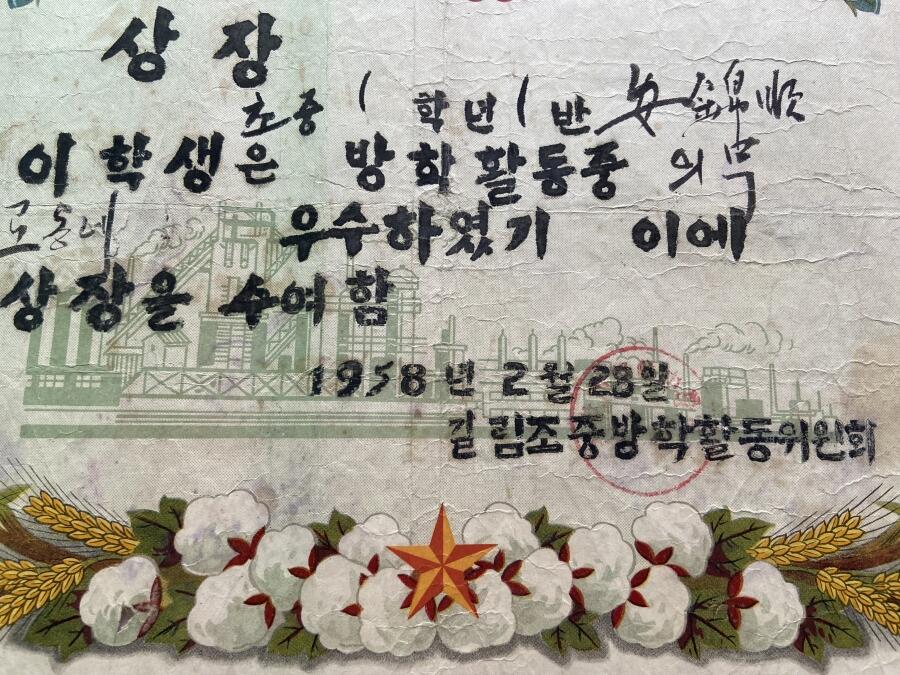 상장
초중 1 학년 1 반 安錦順
이 학생은 방학활동중 의무
로동에 우수하였기 이에
상장을 수여함
1958년 2월 28일
길림조중방학활동위원회